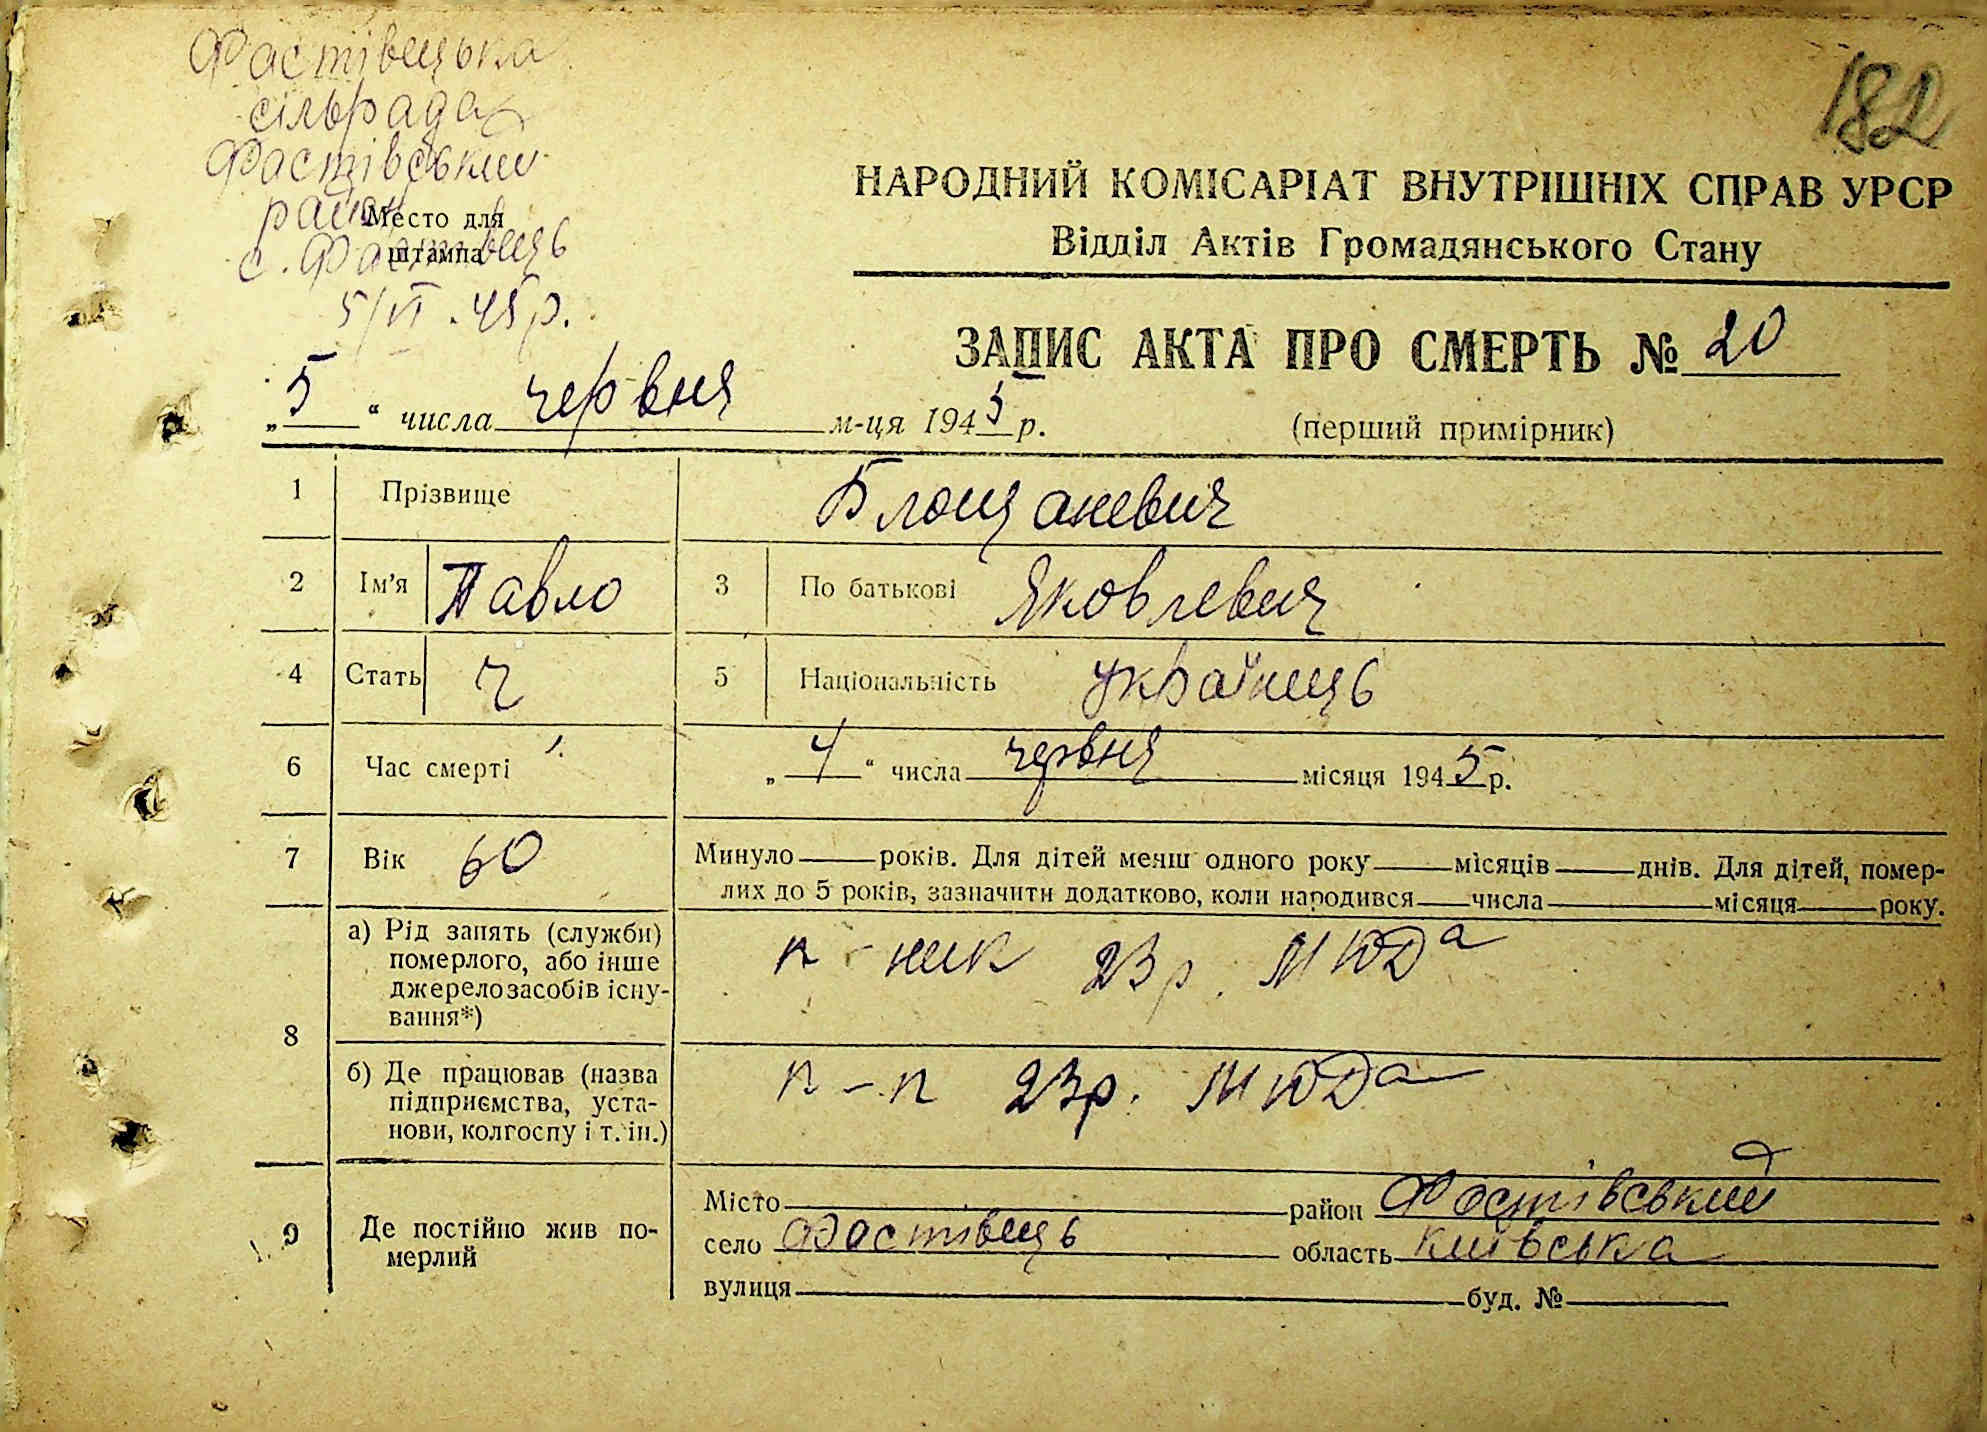 Фастівецька
сільрада
Фастівський
район
с. Фастівець
Место для
штампа
5/VI. 45 р.
182
НАРОДНИЙ КОМІСАРІАТ ВНУТРІШНІХ СПРАВ УРСР
Відділ Актів Громадянського Стану
ЗАПИС АКТА ПРО СМЕРТЬ № 20
„5“ числа червня м-ця 1945 р.
(перший примірник)
1 Прізвище Блощаневич
2 Ім'я Павло 3 По батькові Яковлевич
4 Стать ч 5 Національність українець
6 Час смерті „4“ числа червня місяця 1945 р.
7 Вік 60 Минуло років. Для дітей менш одного року місяців днів. Для дітей, помер-
лих до 5 років, зазначити додатково, коли народився числа місяця року.
8 а) Рід занять (служби)
померлого, або інше
джерело засобів існу-
вання*)
к-ник 23 р. МЮДа
б) Де працював (назва
підприємства, уста-
нови, колгоспу і т. ін.)
к-п 23 р. МЮДа
9 Де постійно жив по-
мерлий
Місто район Фастівський
село Фастівець область київська
вулиця буд. №